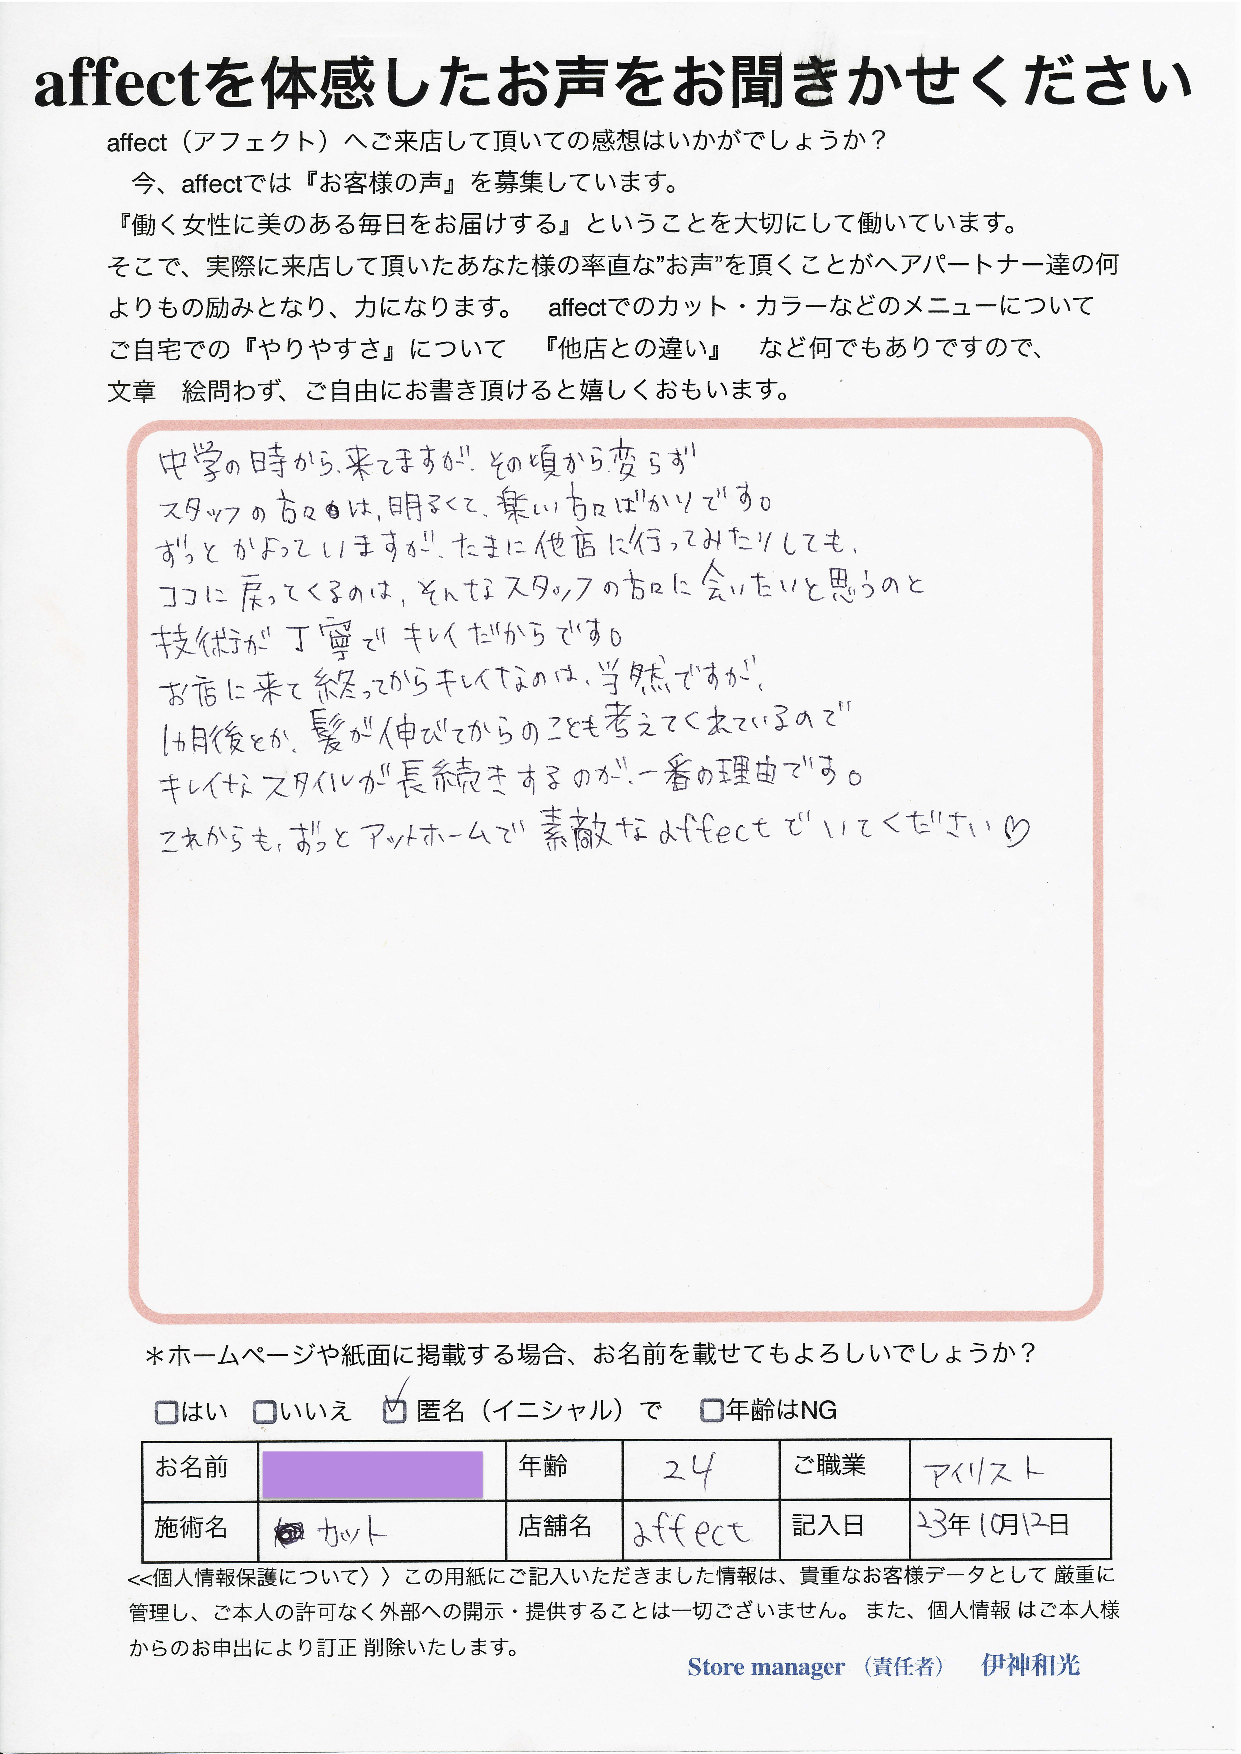 affectを体感したお声をお聞きかせください
affect（アフェクト）へご来店して頂いての感想はいかがでしょうか？
今、affectでは『お客様の声』を募集しています。
『働く女性に美のある毎日をお届けする』ということを大切にして働いています。
そこで、実際に来店して頂いたあなた様の率直な”お声”を頂くことがヘアパートナー達の何
よりもの励みとなり、力になります。　affectでのカット・カラーなどのメニューについて
ご自宅での『やりやすさ』について　『他店との違い』　など何でもありですので、
文章　絵問わず、ご自由にお書き頂けると嬉しくおもいます。
中学の時から、来てますが、その頃から変らず
スタッフの方々は、明るくて、楽しい方々ばかりです。
ずっとかよっていますが、たまに他店に行ってみたりしても、
ココに戻ってくるのは、そんなスタッフの方々に会いたいと思うのと
技術が丁寧でキレイだからです。
お店に来て終ってからキレイなのは、当然ですが、
1ヵ月後とか、髪が伸びてからのことも考えてくれているので
キレイなスタイルが長続きするのが、一番の理由です。
これからも、ずっとアットホームで素敵なaffectでいてください♡
＊ホームページや紙面に掲載する場合、お名前を載せてもよろしいでしょうか？
□はい　□いいえ　☑匿名（イニシャル）で　□年齢はNG
お名前　年齢　24　ご職業　アイリスト
施術名　カット　店舗名　affect　記入日　23年10月12日
<<個人情報保護について〉〉この用紙にご記入いただきました情報は、貴重なお客様データとして 厳重に
管理し、ご本人の許可なく外部への開示・提供することは一切ございません。 また、個人情報 はご本人様
からのお申出により訂正 削除いたします。
Store manager （責任者）　伊神和光